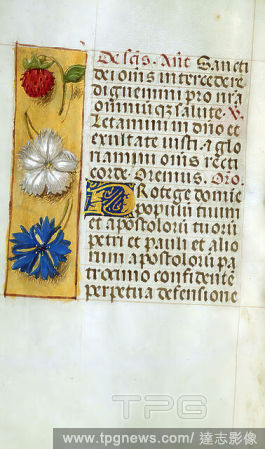 De scis. Ant Sancti
dei oms intercedere
dignemini pro nra
omniumque salute. V.
Letamini in dno et
exultate iusti. Et glo
riamini oms recti
corde. Oremus. Oro.
Protege domine
populum tuum
et apostolorum tuorum
petri et pauli et alio
rum apostolorum pa
trocinio confidentem
perpetua defensione
TPG
www.tpgnews.com/ 達志影像